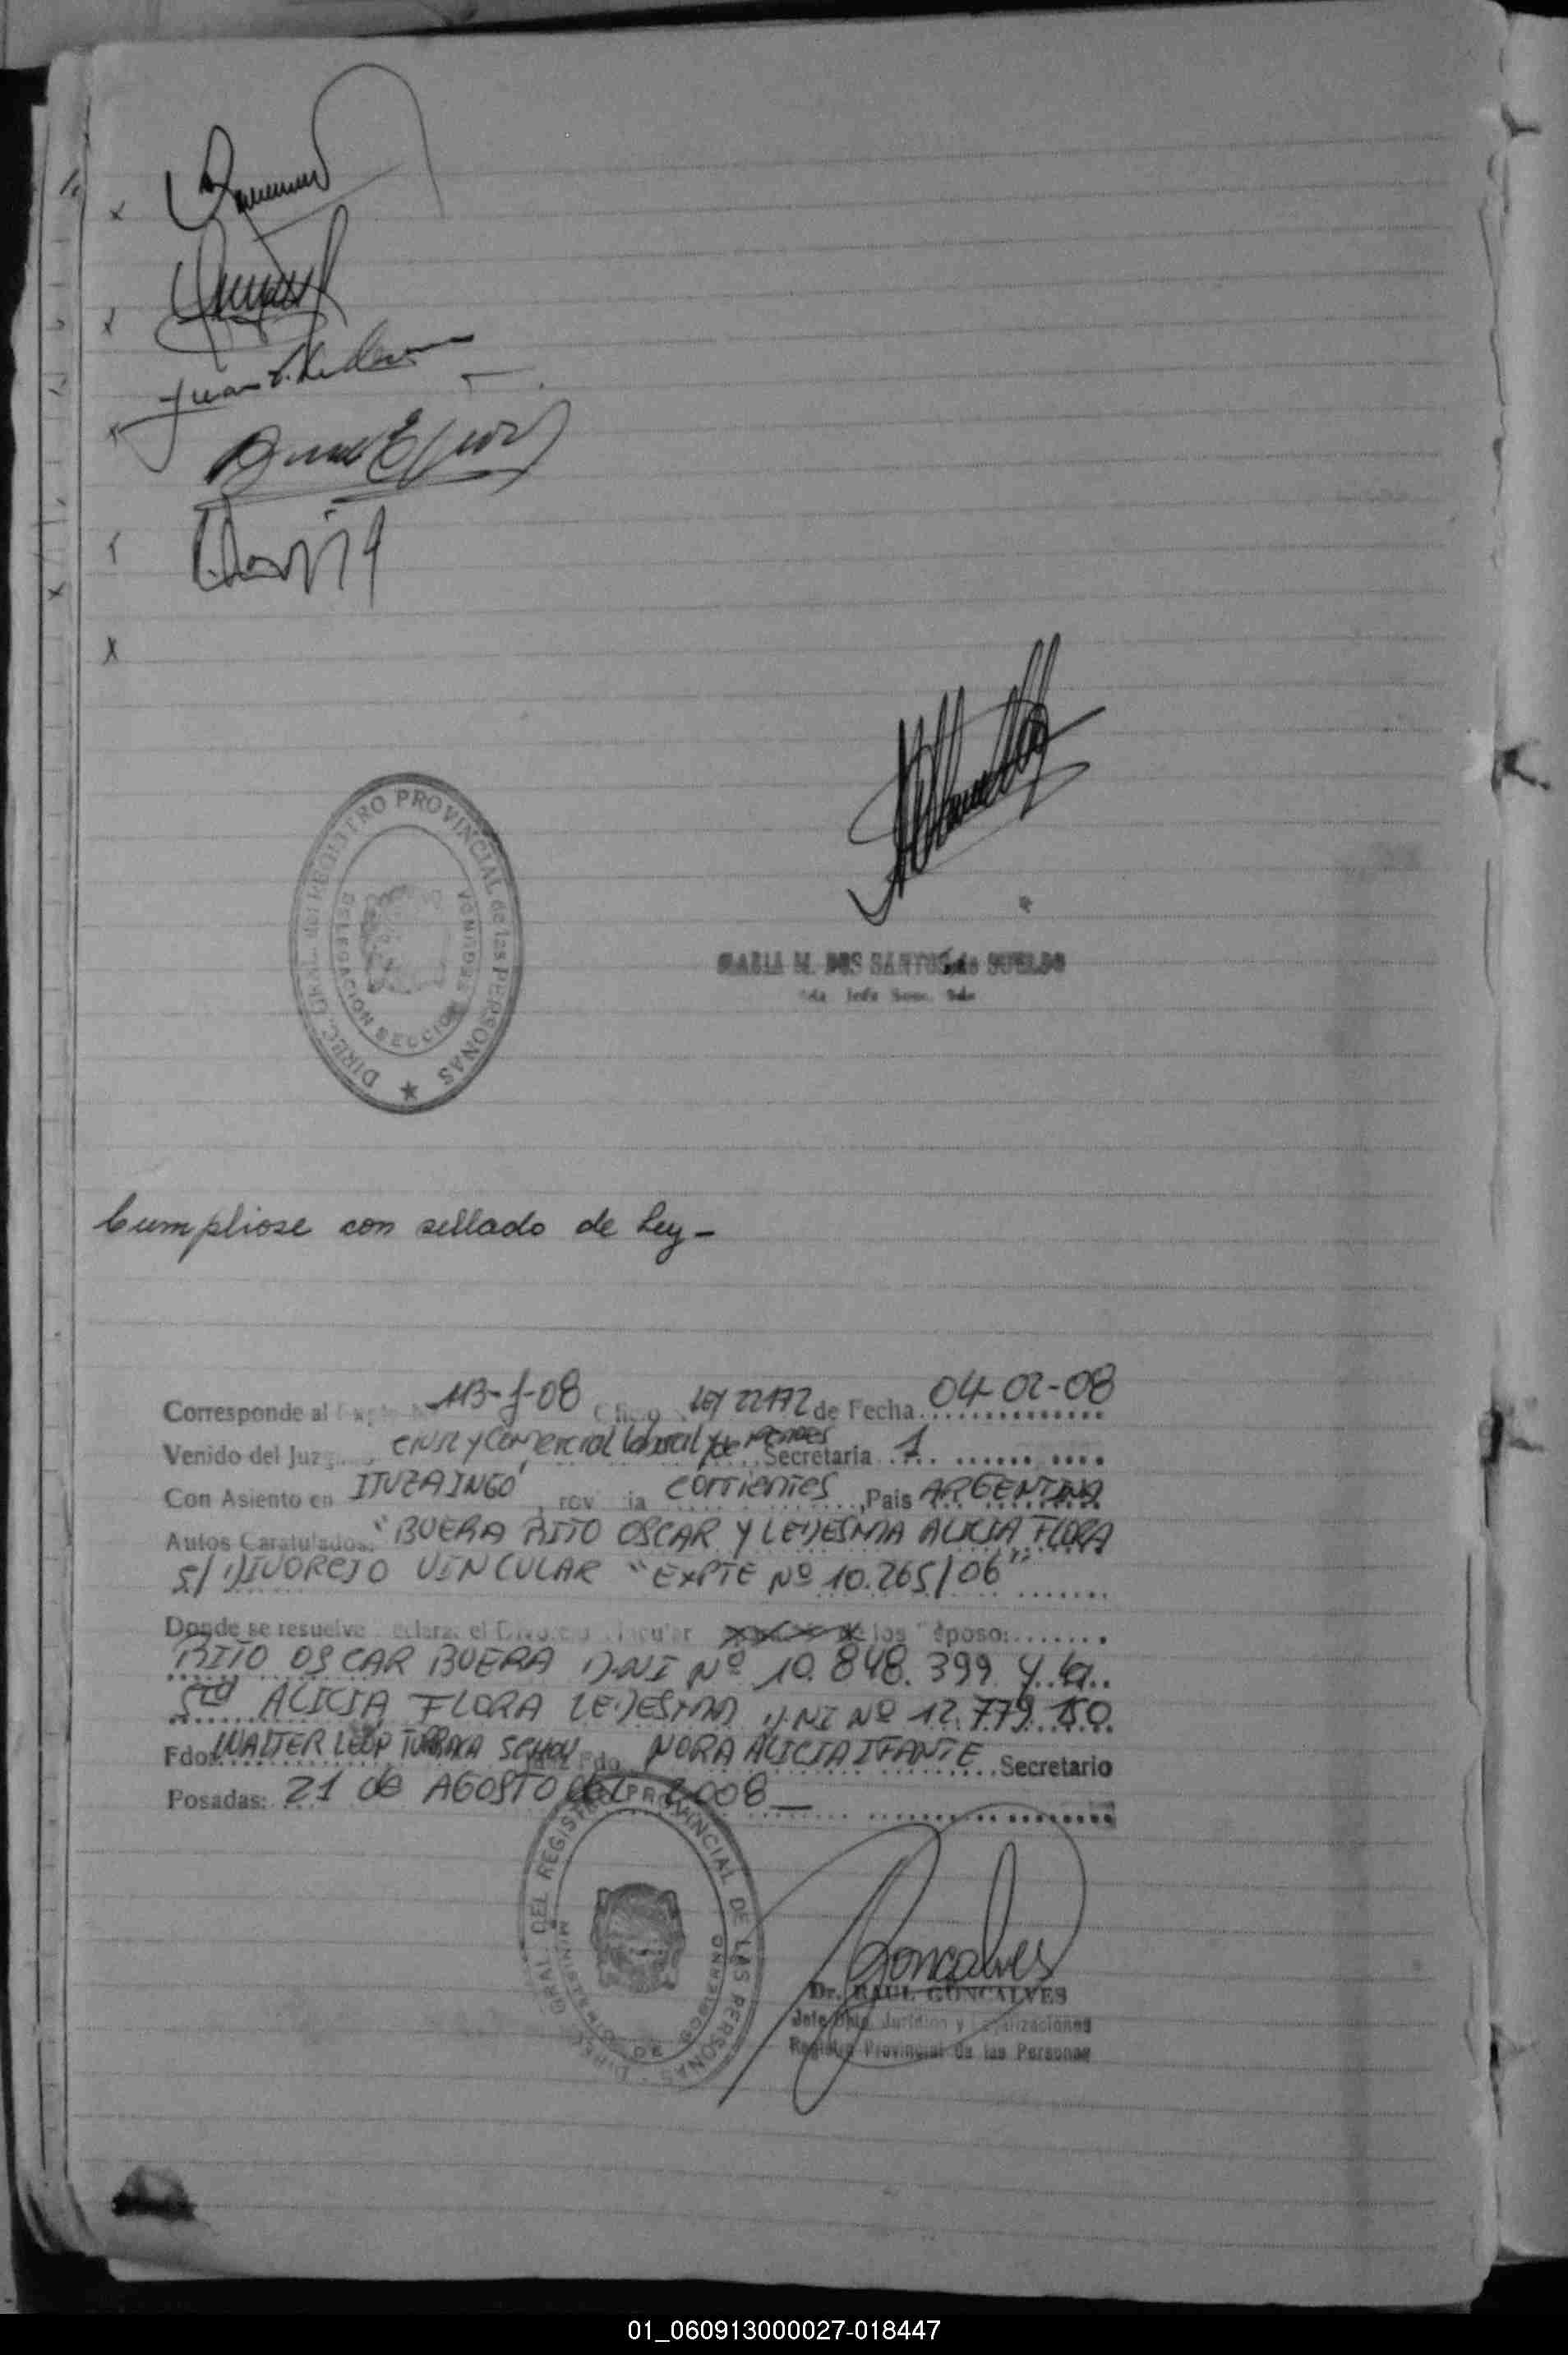 DIREC. GRAL. del REGISTRO PROVINCIAL de las PERSONAS
DELEGACION SECCION SEGUNDA
MARIA M. DOS SANTOS de SUELDO
Cumpliose con sellado de Ley -
Corresponde al Expte Nº 113-J-08 Oficio LEY 22172 de Fecha 04-02-08
Venido del Juzg. Civil y Comercial Laboral y de Menores Secretaria 1
Con Asiento en ITUZAINGÓ, Provincia Corrientes, Pais ARGENTINA
Autos Caratulados: "BUERA RITO OSCAR Y LEDESMA ALICIA FLORA
S/ DIVORCIO VINCULAR "EXPTE Nº 10.265/06"
Donde se resuelve declarar el Divorcio Vincular de los Esposos
RITO OSCAR BUERA D.NI Nº 10.848.399 y la
Sra ALICIA FLORA LEDESMA D.NI Nº 12.779.150
Fdo: WALTER Juez Fdo. NORA ALICIA IFANTE Secretario
Posadas: 21 de AGOSTO del 2008 —
DIREC. GRAL. DEL REGISTRO PROVINCIAL DE LAS PERSONAS
MINISTERIO DE GOBIERNO
Goncalves
Dr. RAUL GONCALVES
Jefe Dpto. Jurídico y Legalizaciones
Registro Provincial de las Personas
01_060913000027-018447